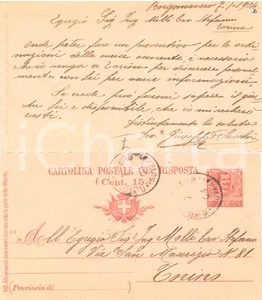 Borgomanero 7-1-1904
Egregio Sig Ing Molli Cav Stefano
Torino
Onde poter fare un preventivo per le ordi
nazioni della merce occorrente è necessario
che io venga a Torino ed abboccarmi personal
mente con Lei per varie informazioni.
Se crede può farmi sapere il giorno
che Lei è disponibile, che io mi recherò
costì.
Distintamente la saluto
CARTOLINA POSTALE CON RISPOSTA
(Cent. 15)
All'Egregio Sig Ing Molli Cav Stefano
Via San Maurizio N 81
Torino
(Provincia di)